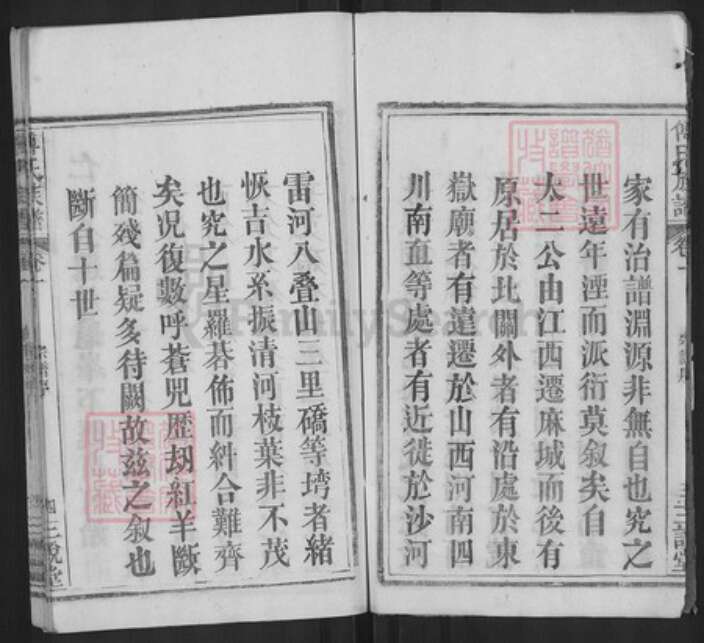 家有治譜淵源非無自也究之
世遠年湮而派衍莫敘矣自
大二公由江西遷麻城而後有
原居於北關外者有沿處於東
嶽廟者有遠遷於山西河南四
川南直等處者有近徙於沙河
雷河八叠山三里橋等塆者緒
恢吉水系振清河枝葉非不茂
也究之星羅碁佈而糾合難齊
矣况復數呼蒼兕歷刼紅羊斷
簡殘篇疑多待闕故兹之敘也
斷自十世
氏族譜
卷一
FamilySearch